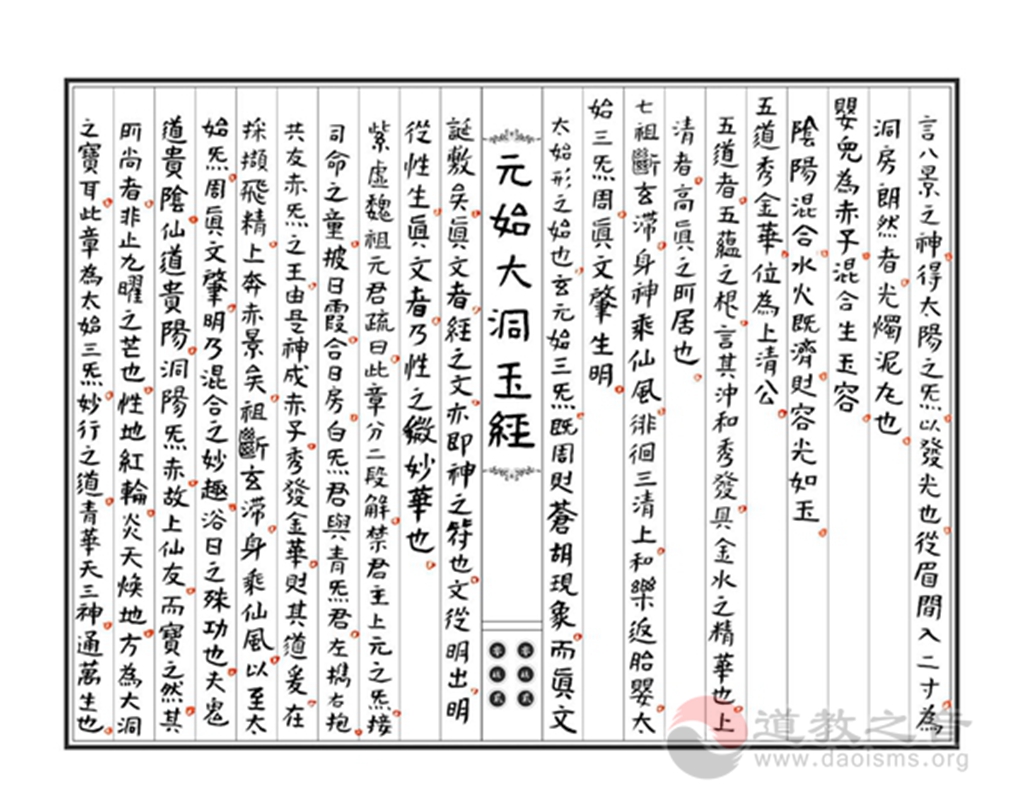 言八景之神得太陽之炁以發光也從眉間入二寸為
洞房朗然者光燭泥丸也
嬰兒為赤子混合生玉容
陰陽混合水火既濟則容光如玉
五道秀金華位為上清公
五道者五蘊之根言其沖和秀發具金水之精華也上
清者高眞之所居也
七祖斷玄滯身神乘仙風徘徊三清上和樂返胎嬰太
始三炁周眞文肇生明
太始形之始也玄元始三炁既周則蒼胡現象而眞文
元始大洞玉經
誕敷矣眞文者經之文亦即神之符也文從明出明
從性生眞文者乃性之微妙華也
紫虛魏祖元君疏曰此章分二段解禁君主上元之炁接
司命之童披日霞合日房白炁君與青炁君左擕右抱
共友赤炁之王由是神成赤子秀發金華則其道爰在
採擷飛精上奔赤景矣祖斷玄滯身乘仙風以至太
始炁周眞文肇明乃混合之妙趣浴日之殊功也夫鬼
道貴陰仙道貴陽洞陽炁赤故上仙友而寶之然其
所尚者非止九曜之芒也性地紅輪炎天煥地方為大洞
之寶耳此章為太始三炁妙行之道青華天三神通萬生也
道教之音
www.daoisms.org